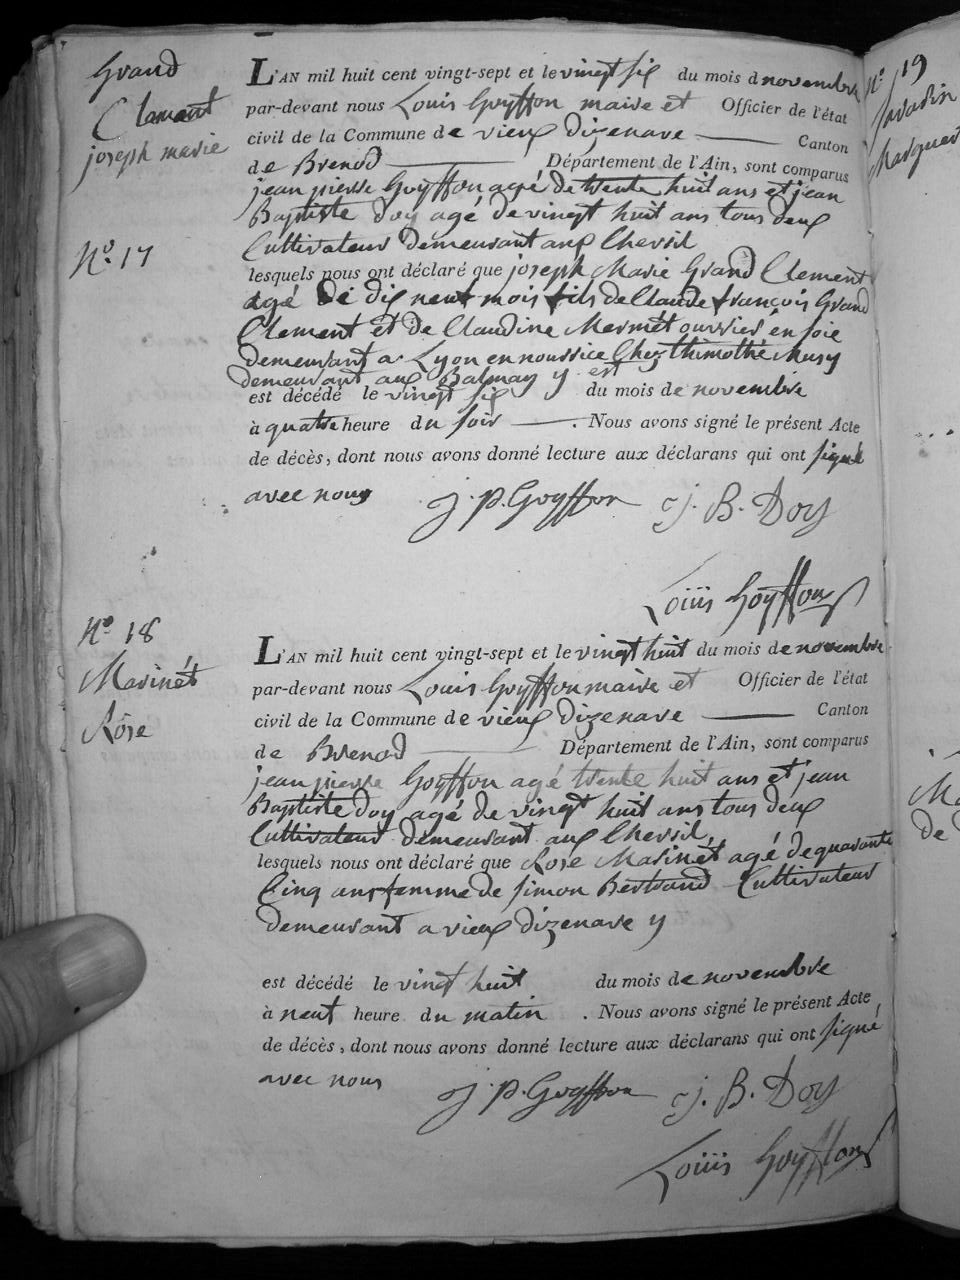 Grand
Clament
joseph marie
N.° 17
L'AN mil huit cent vingt-sept et le vingt six du mois d novembre
par-devant nous Louis Goyffon maire et Officier de l'état
civil de la Commune de vieux dizenave Canton
de Brenod Département de l'Ain, sont comparus
jean pierre Goyffon agé de trente huit ans et jean
Baptiste doy agé de vingt huit ans tous deux
Cultivateur demeurant aux Chevril
lesquels nous ont déclaré que joseph Marie Grand Clement
agé de dix neuf mois fils de Claude françois Grand
Clement et de Claudine Mermét ouvrier en soie
demeurant a Lyon en nourrice Chez thimothé Musy
demeurant aux Balmay y est
est décédé le vingt six du mois de novembre
à quatre heure du soir . Nous avons signé le présent Acte
de décès, dont nous avons donné lecture aux déclarans qui ont signé
avec nous j. p. Goyffon j. B. Doy
Loüis Goÿffon
N.° 18
Marinét
Rose
L'AN mil huit cent vingt-sept et le vingt huit du mois de novembre
par-devant nous Louis Goyffon maire et Officier de l'état
civil de la Commune de vieux dizenave Canton
de Brenod Département de l'Ain, sont comparus
jean pierre Goyffon agé trente huit ans et jean
Baptiste doy agé de vingt huit ans tous deux
Cultivateur demeurant aux Chevril
lesquels nous ont déclaré que Rose Marinét agé de quarante
Cinq ans femme de simon Bertrand Cultivateur
demeurant a vieux dizenave y
est décédé le vingt huit du mois de novembre
à neuf heure du matin . Nous avons signé le présent Acte
de décès, dont nous avons donné lecture aux déclarans qui ont signé
avec nous j. p. Goyffon j. B. Doy
Loüis Goÿffon
N.° 19